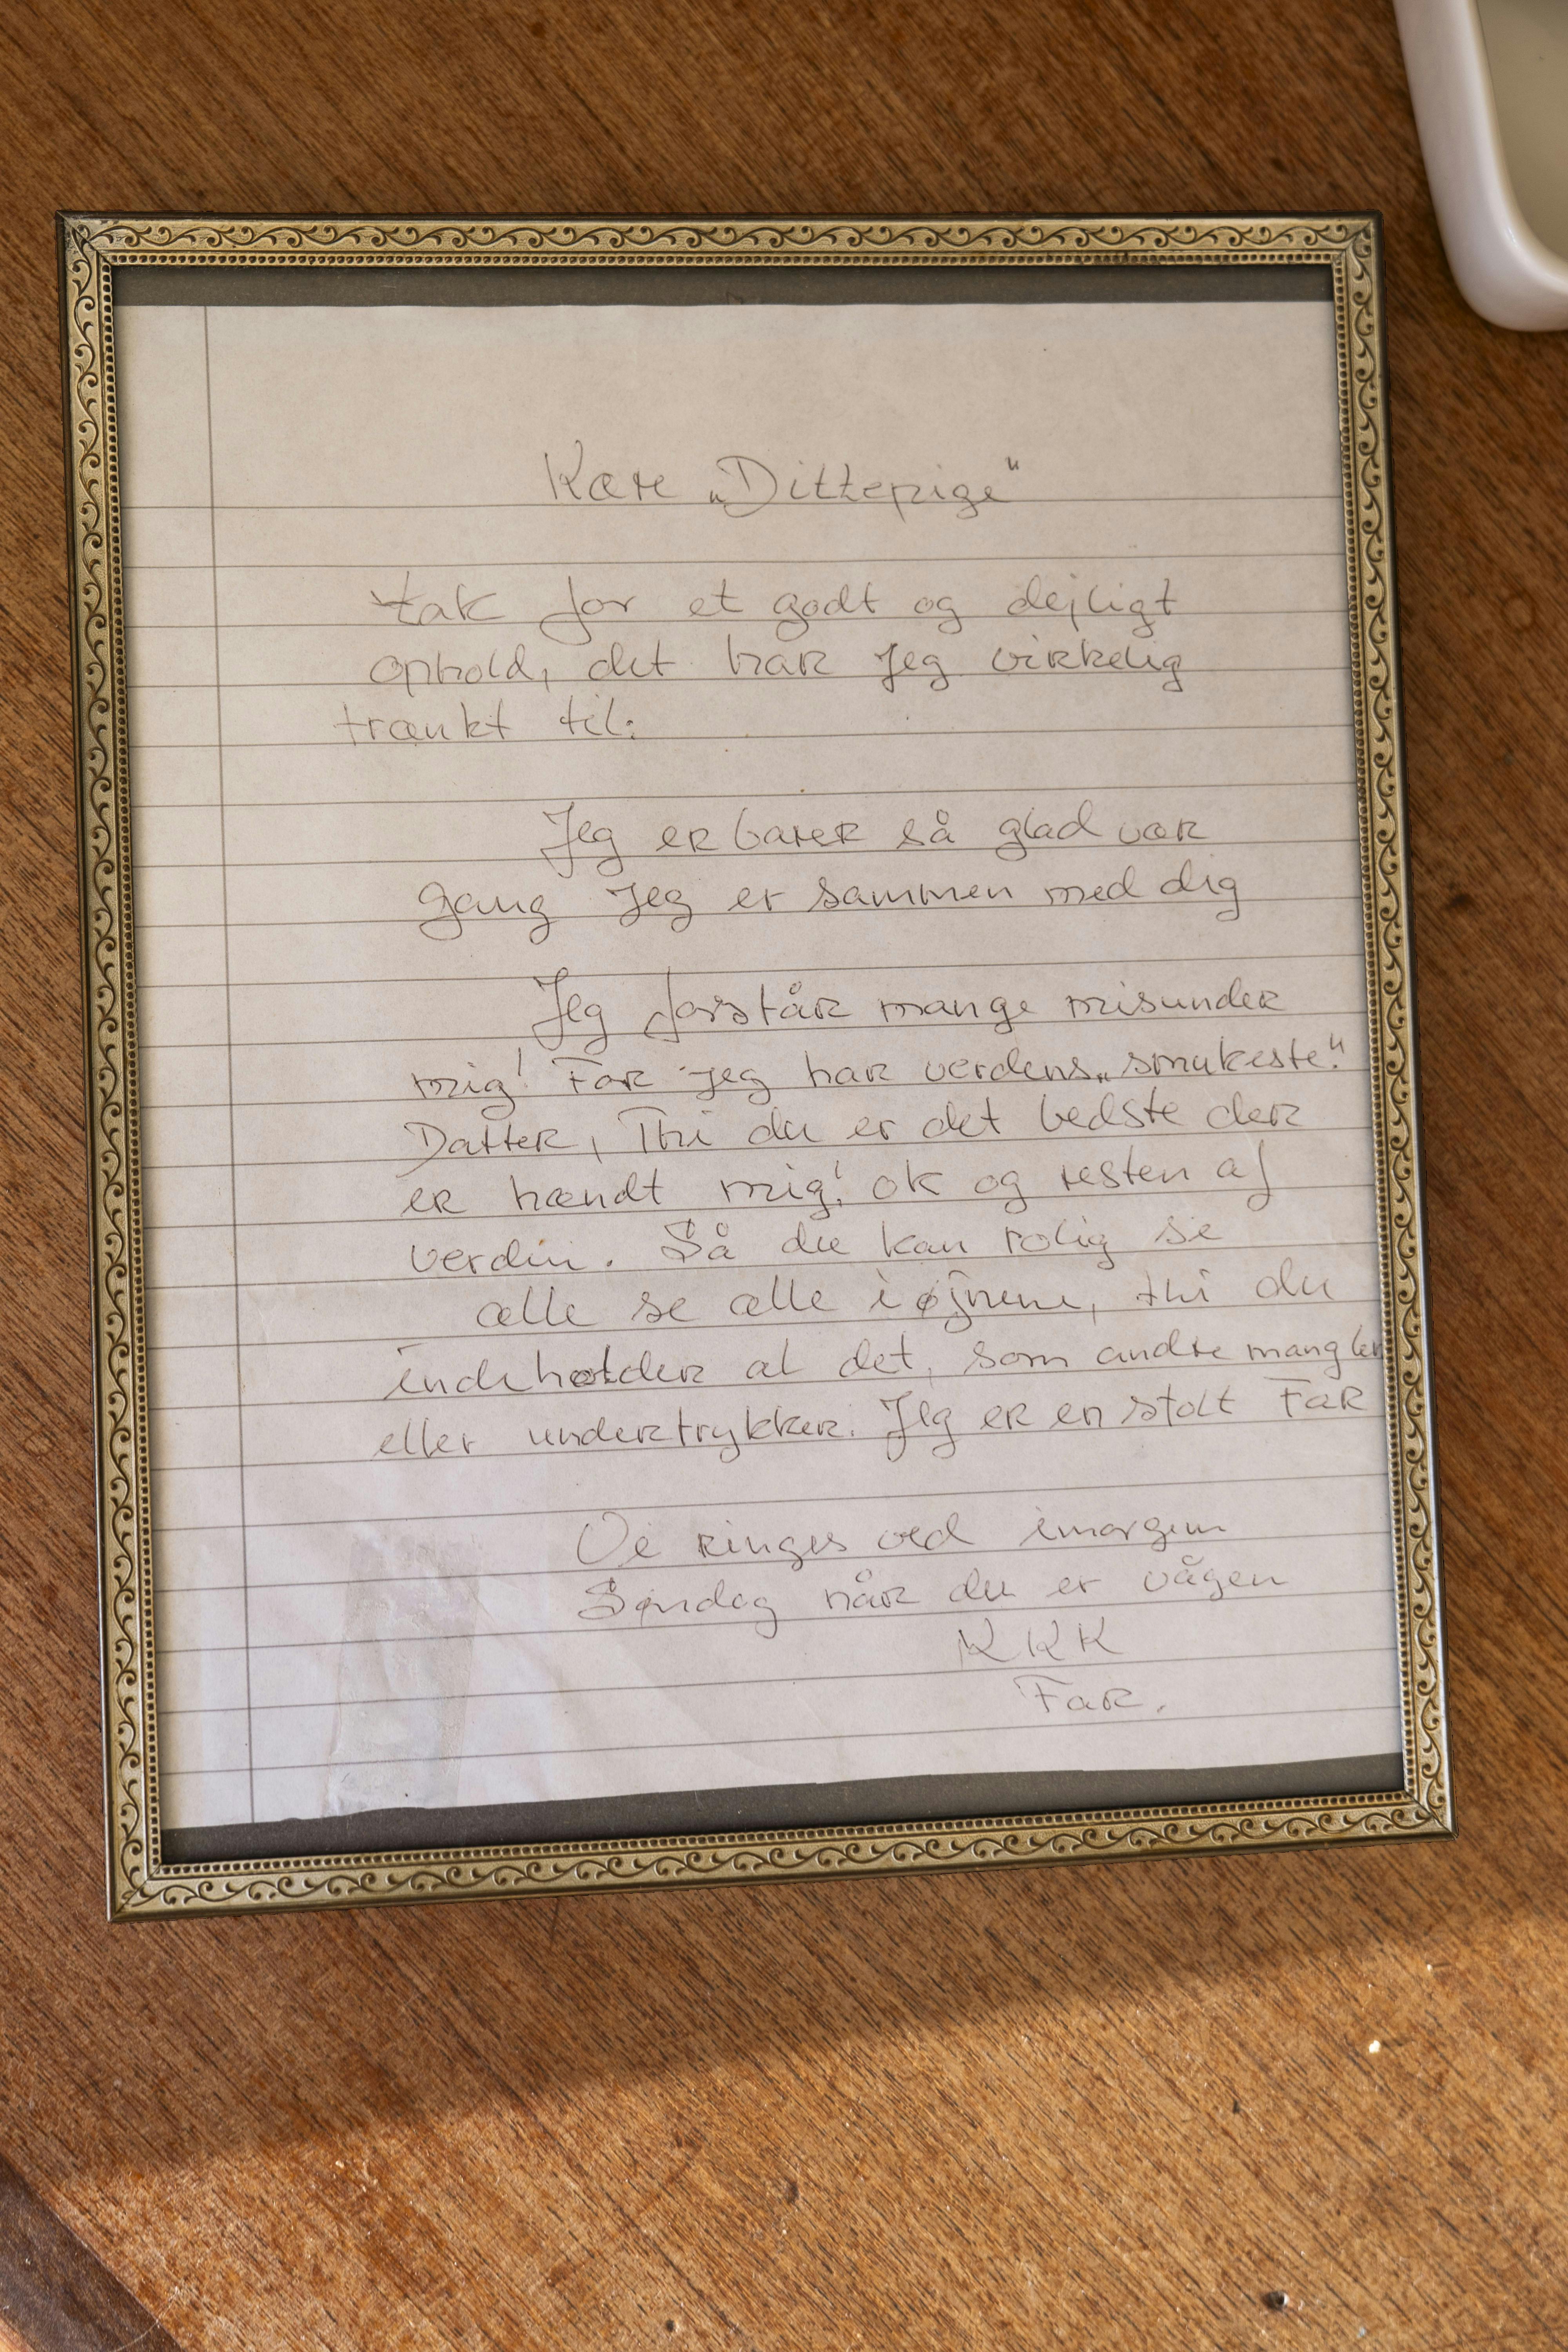 Kære „Dittepige“
tak for et godt og dejligt
ophold, det har jeg virkelig
trænkt til.
Jeg er barer så glad vær
gang jeg er sammen med dig
Jeg forstår mange misunder
mig! For jeg har verdens „smukeste.“
Datter, Thi du er det bedste der
er hændt mig! ok og resten af
verdin. Så du kan rolig se
alle se alle i øjnene, thi du
indeholder al det, som andre mangler
eller undertrykker. Jeg er en stolt Far
Vi ringes ved imorgen
Søndag når du er vågen
KKK
Far.